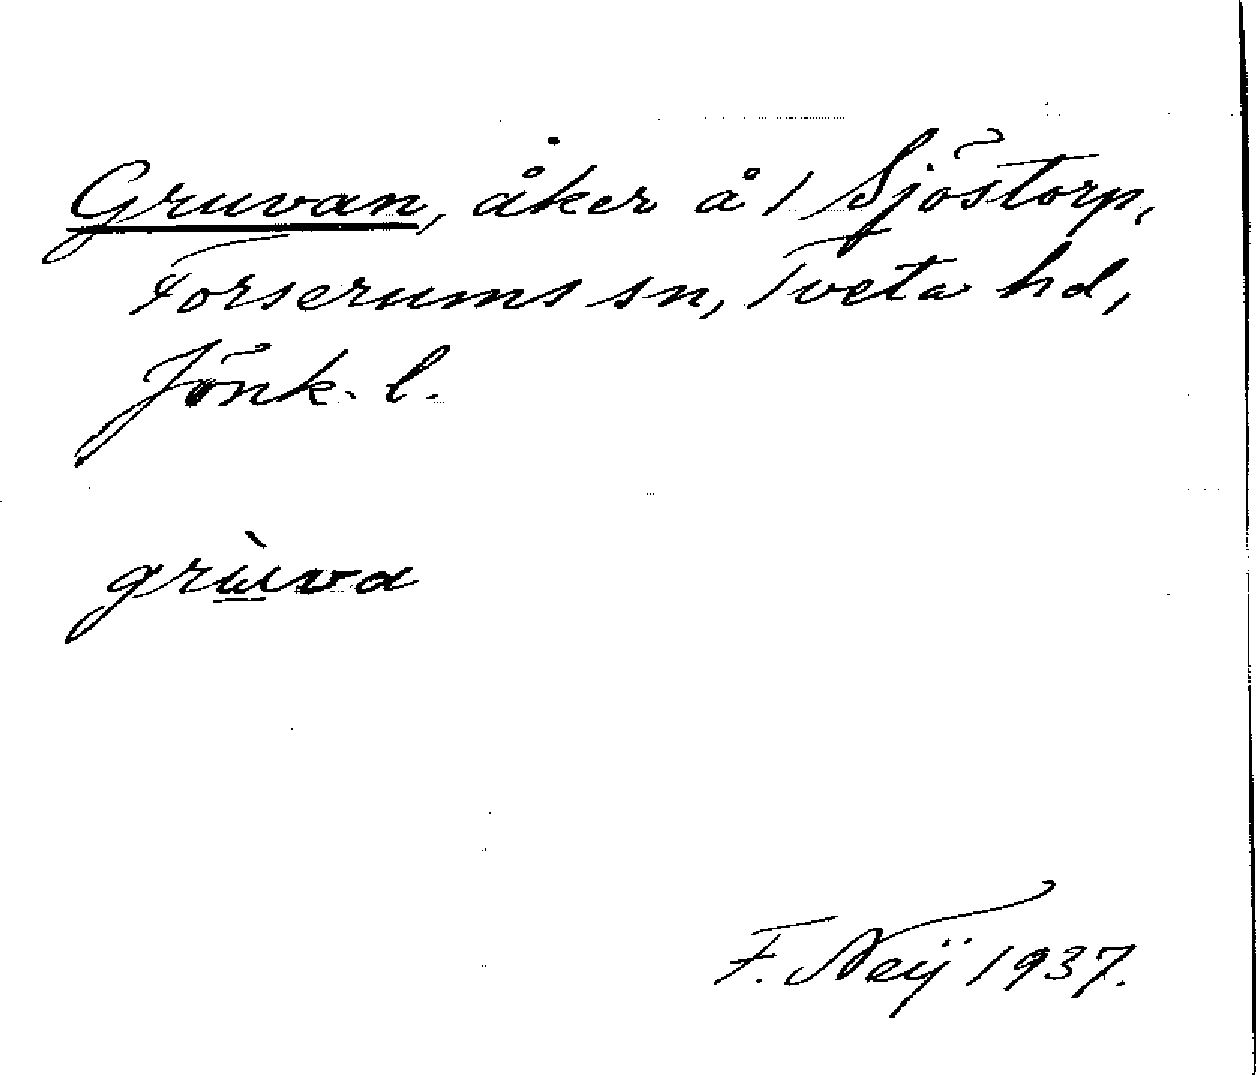 Gruvan, åker å 1 Sjöstorp,
Forserums sn, Tveta hd,
Jönk. l.
grùva
F. Neij 1937.